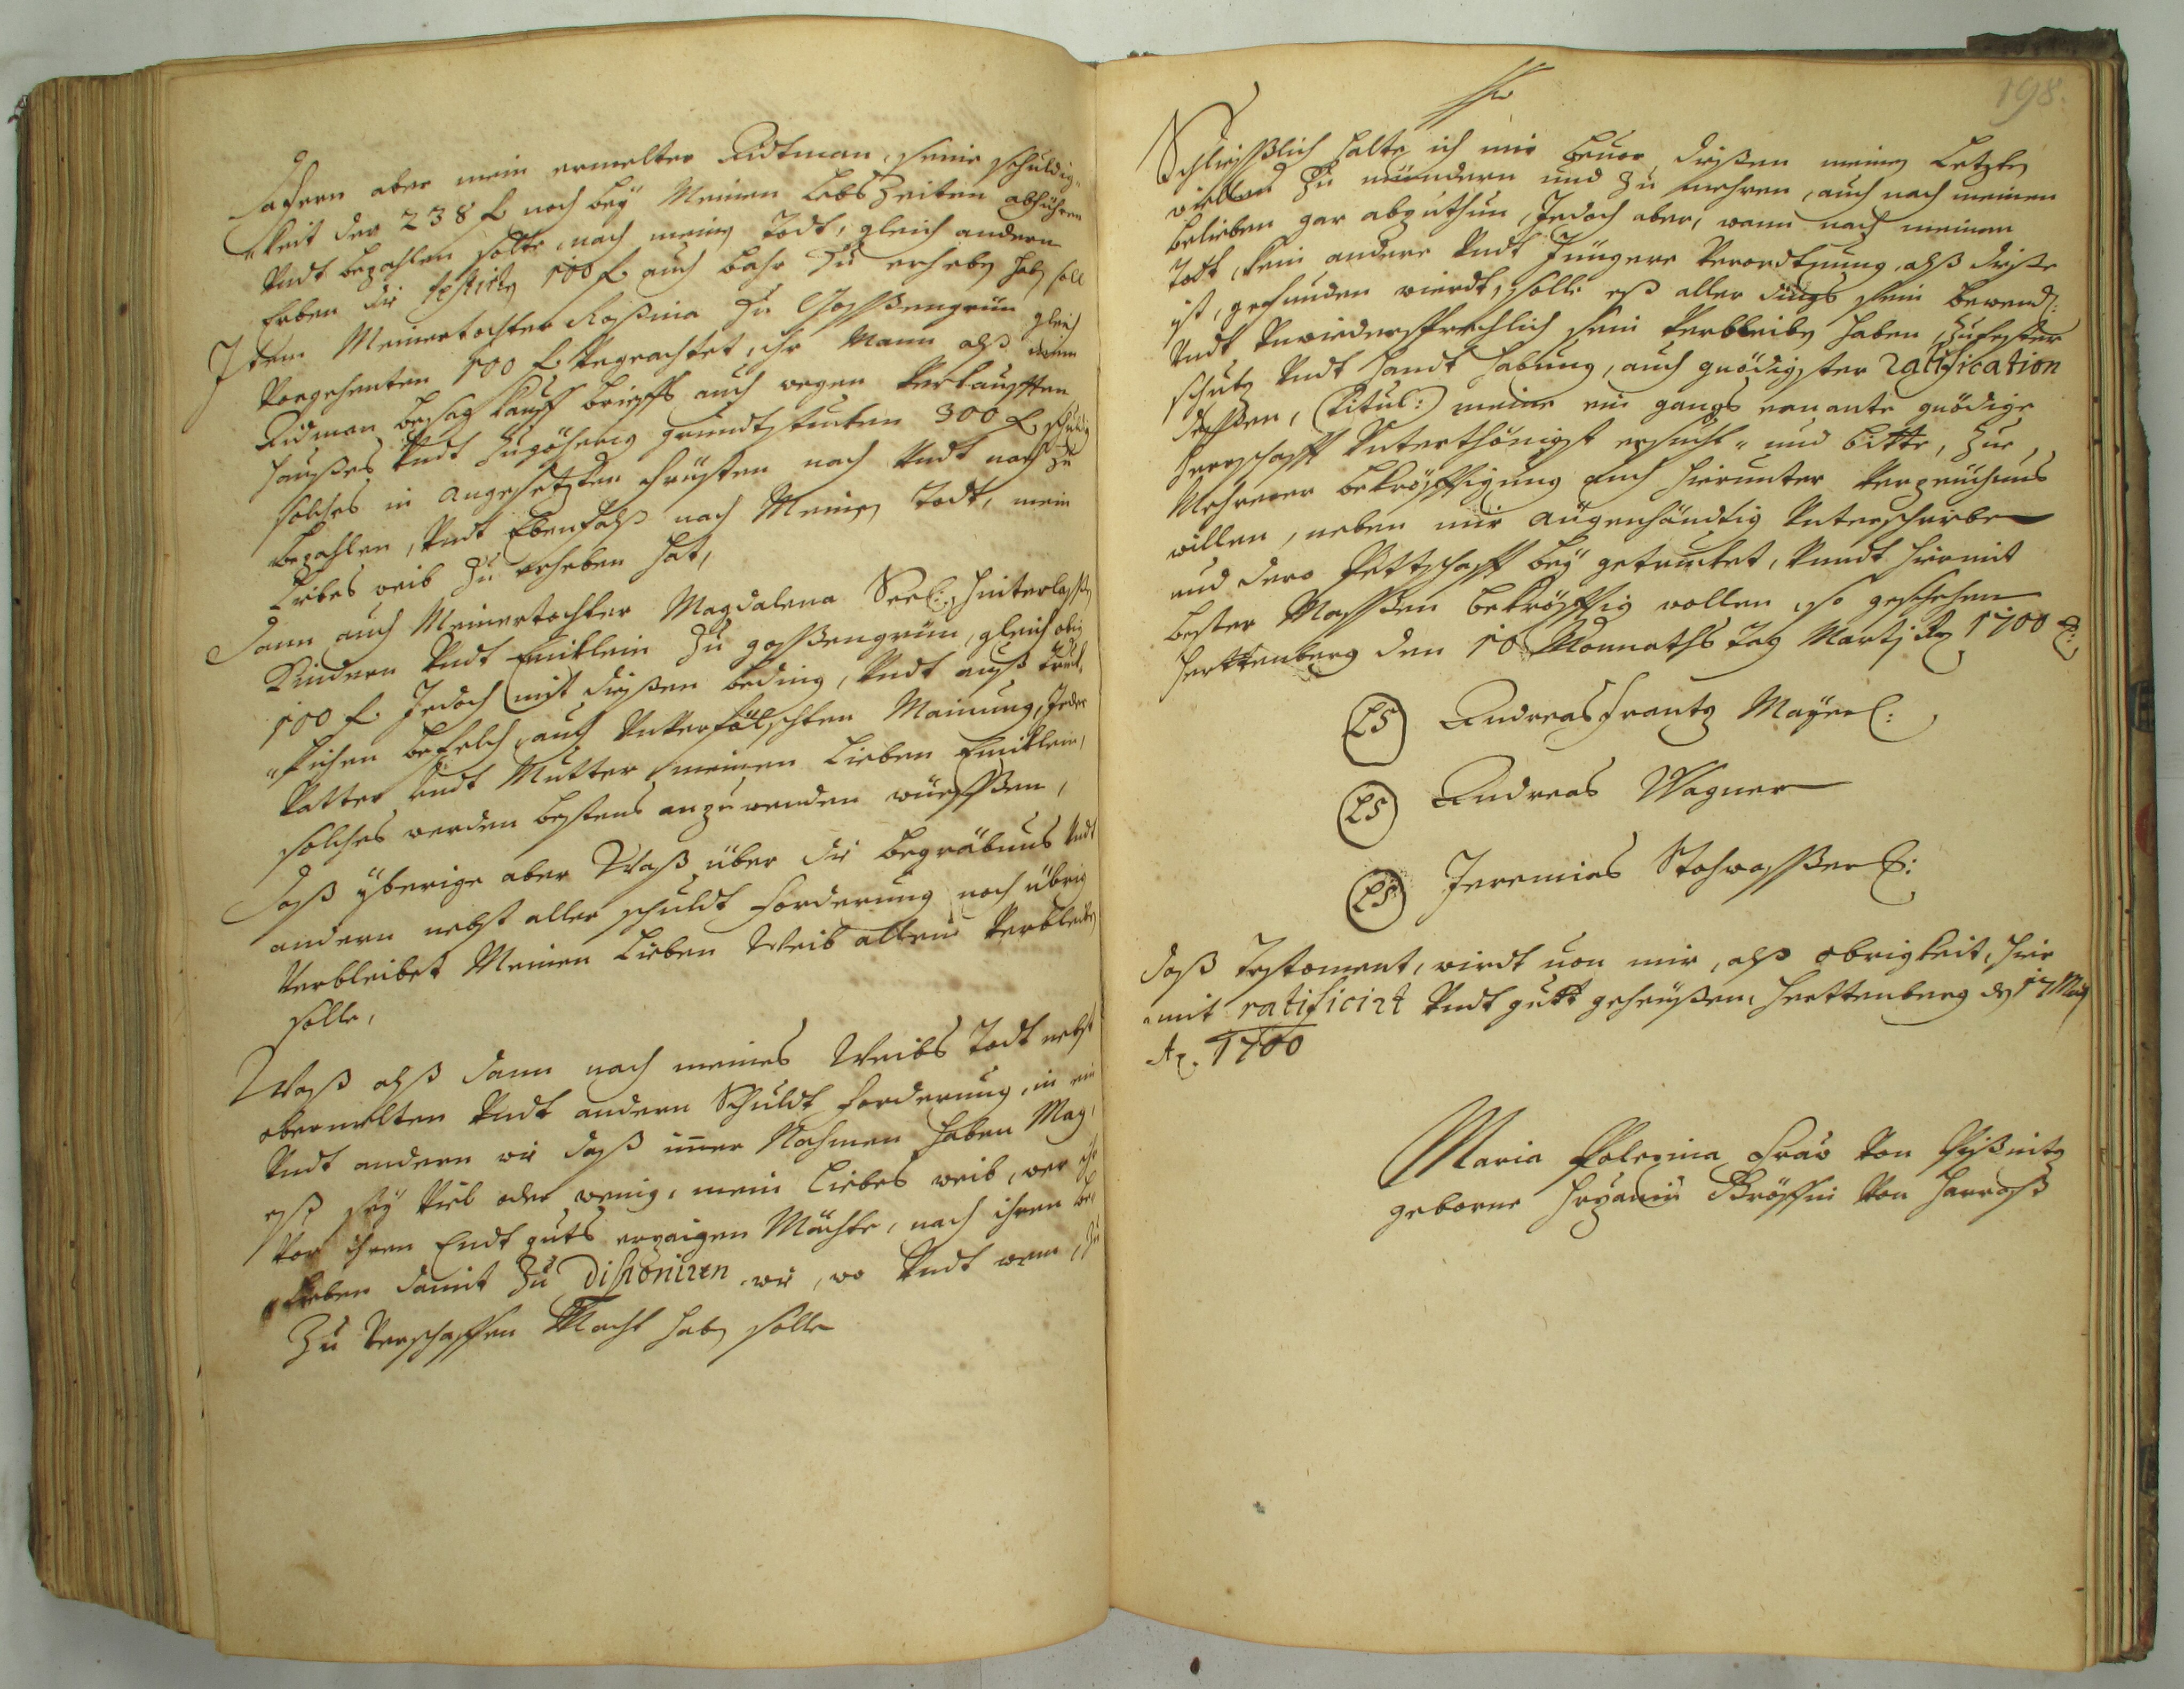 Dafern aber mein ermelter Aidtman, seine schuldig-
"keit der 238 f. noch bey Meinen LebsZeiten abführen
Undt bezahlen solte, nach meinen Todt, gleich andern
Erben die 100 f. auch bahr Zu erheben hab soll
Item Meiner tochter Rosina Zu Gossengrün gleich
Vorgesenten 100 f. Ungeachtet, ihr Mann alß mein
Aidman besag Kauff brieffs auch wegen Verkaufften
Haußes Undt Zugehörig grundtstucken 300 f. schuldig
solches in angesetzten früsten nach Undt nach Zu
bezahlen, Undt Ebenfalß nach Meinen Todt, mein
Liebes weib Zu erheben hat,
Dann auch Meiner tochter Magdalena Seel: Hinterlassen
Kindern Undt Enicklein Zu goßengrün, gleich obig
100 f. Jedoch mit dießen beding, Undt auß truck-
"lichen befelch, auch Unverfälschten Mainung, Jeder
Vatter Undt Mutter meinen Lieben Enicklein,
solches werden bestens anzuwenden wüssen,
Daß yberige aber Waß über die begräbnus Undt
andern nebst aller schuldt forderung noch übrig
Verbleibet Meinen Lieben Weib allein Verbleiben
solle,
Waß alß dann nach meines Weibs Todt nebst
obermelten Undt andern Schuldt forderung, in ein
Undt andern wie daß imer Nahmen haben Mag,
eß sey Viel oder wenig, mein Liebes weib, wer ihr
Vor ihren Endt guts erzaigen Möchte, nach ihren be-
lieben damit Zu Disponiren wie, wo Undt wem, Zu
Zu Verschaffen Macht hab solle
198.
Schließlich halte ich mir bevor, dießen meinen Letzten
willen Zu mündern und Zu mehren, auch nach meinen
belieben gar abzuthun, Jedoch aber, wann nach meinen
Todt, kein andere Undt Jüngere Verordtnung, alß diese
ist, gefunden wierdt, solle eß aller dings sein bewend:
Undt Unwiedersprechlich sein Verbleiben haben, Zu fester
schutz Undt Handt habung, auch gnödigster ratification
dessen, (Titul:) meine ein gangs ernante gnödige
Herrschafft Unterthönigst ersucht- und bitte, Zur
Mehrerer bekröfftigung auch hierunter Verzeuchnus
willen, neben mir augenhändtig Unterschriebe
und dero Pettschafft bey getrucket, Undt hiermit
bester Massen bekröfftig wollen, so geschehen
Herttenberg den 10 Monnaths Tag Martj Ao 1700
LS Andreas Frantz Mayerl:
LS Andreas Wagner
LS Jeremias Stohwasser
Daß Testament, wirdt von mir, alß obrigkeit, hier
"mit ratificirt Undt gutt geheißen, Herttenberg den 17 May
Ao. 1700
Maria Polexina Frau Von
geborne Gröffin Von Harraß